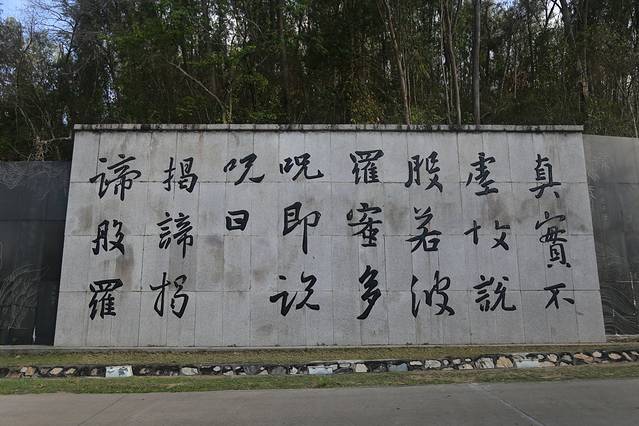 真實不
虛故說
般若波
羅蜜多
咒即说
咒曰
揭諦揭
諦般羅